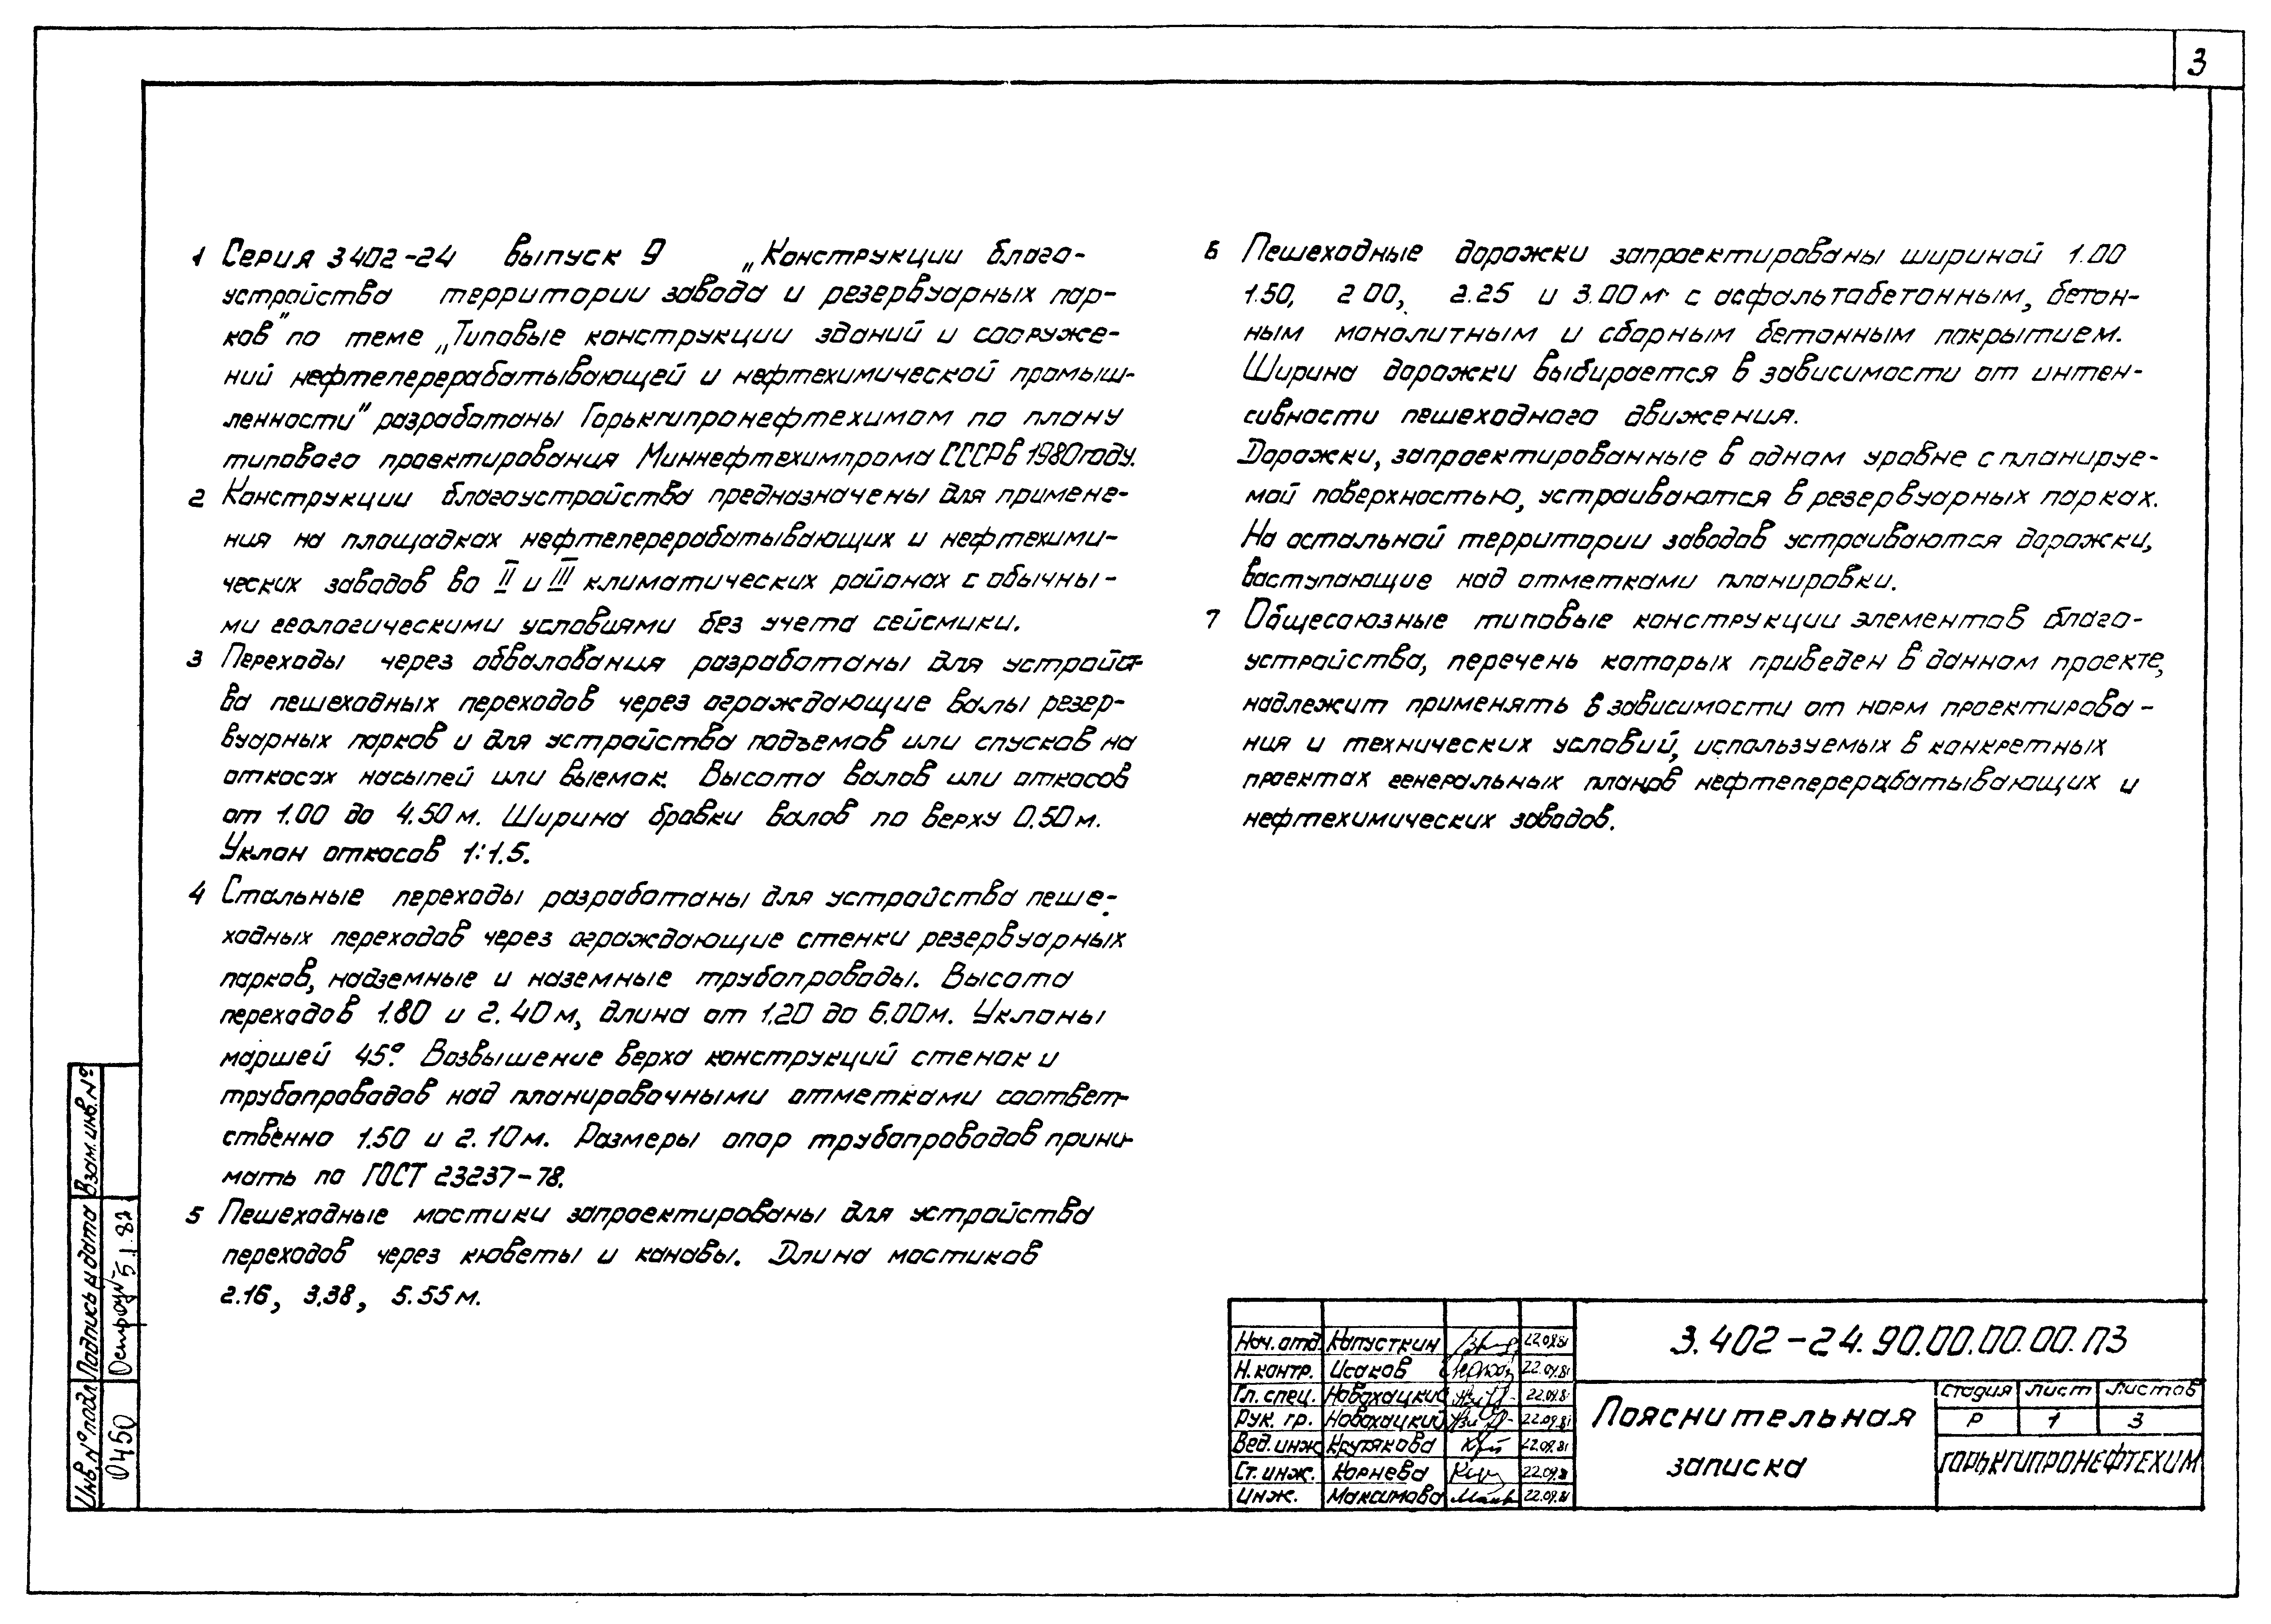 3
1 Серия 3402-24 выпуск 9 „Конструкции благо-
устройства территории завода и резервуарных пар-
ков" по теме „Типовые конструкции зданий и сооруже-
ний нефтеперерабатывающей и нефтехимической промыш-
ленности" разработаны Горькгипронефтехимом по плану
типового проектирования Миннефтехимпрома СССР в 1980 году.
2 Конструкции благоустройства предназначены для примене-
ния на площадках нефтеперерабатывающих и нефтехими-
ческих заводов во II и III климатических районах с обычны-
ми геологическими условиями без учета сейсмики.
3 Переходы через обвалования разработаны для устройст-
ва пешеходных переходов через ограждающие валы резер-
вуарных парков и для устройства подъемов или спусков на
откосах насыпей или выемок. Высота валов или откосов
от 1.00 до 4.50 м. Ширина бровки валов по верху 0.50 м.
Уклон откосов 1:1.5.
4 Стальные переходы разработаны для устройства пеше-
ходных переходов через ограждающие стенки резервуарных
парков, надземные и наземные трубопроводы. Высота
переходов 1.80 и 2.40 м, длина от 1.20 до 6.00 м. Уклоны
маршей 45°. Возвышение верха конструкций стенок и
трубопроводов над планировочными отметками соответ-
ственно 1.50 и 2.10 м. Размеры опор трубопроводов прини-
мать по ГОСТ 23237-78.
5 Пешеходные мостики запроектированы для устройства
переходов через кюветы и канавы. Длина мостиков
2.16, 3.38, 5.55 м.
6 Пешеходные дорожки запроектированы шириной 1.00
1.50, 2 00, 2.25 и 3.00 м с асфальтобетонным, бетон-
ным монолитным и сборным бетонным покрытием.
Ширина дорожки выбирается в зависимости от интен-
сивности пешеходного движения.
Дорожки, запроектированные в одном уровне с планируе-
мой поверхностью, устраиваются в резервуарных парках.
На остальной территории заводов устраиваются дорожки,
выступающие над отметками планировки.
7 Общесоюзные типовые конструкции элементов благо-
устройства, перечень которых приведен в данном проекте,
надлежит применять в зависимости от норм проектирова-
ния и технических условий, используемых в конкретных
проектах генеральных планов нефтеперерабатывающих и
нефтехимических заводов.
Взам. инв. №
Подпись и дата 5.1.82
Инв. № подл. 0450
Нач. отд. Капусткин 22.09.81
Н. контр. Исаков 22.09.81
Гл. спец. Новохацкий 22.09.81
Рук. гр. Новохацкий 22.09.81
Вед. инж. Крутякова 22.09.81
Ст. инж. Корнева 22.09.81
Инж. Максимова 22.09.81
3.402-24.90.00.00.00.ПЗ
Пояснительная
записка
Стадия Лист Листов
Р 1 3
ГОРЬКГИПРОНЕФТЕХИМ